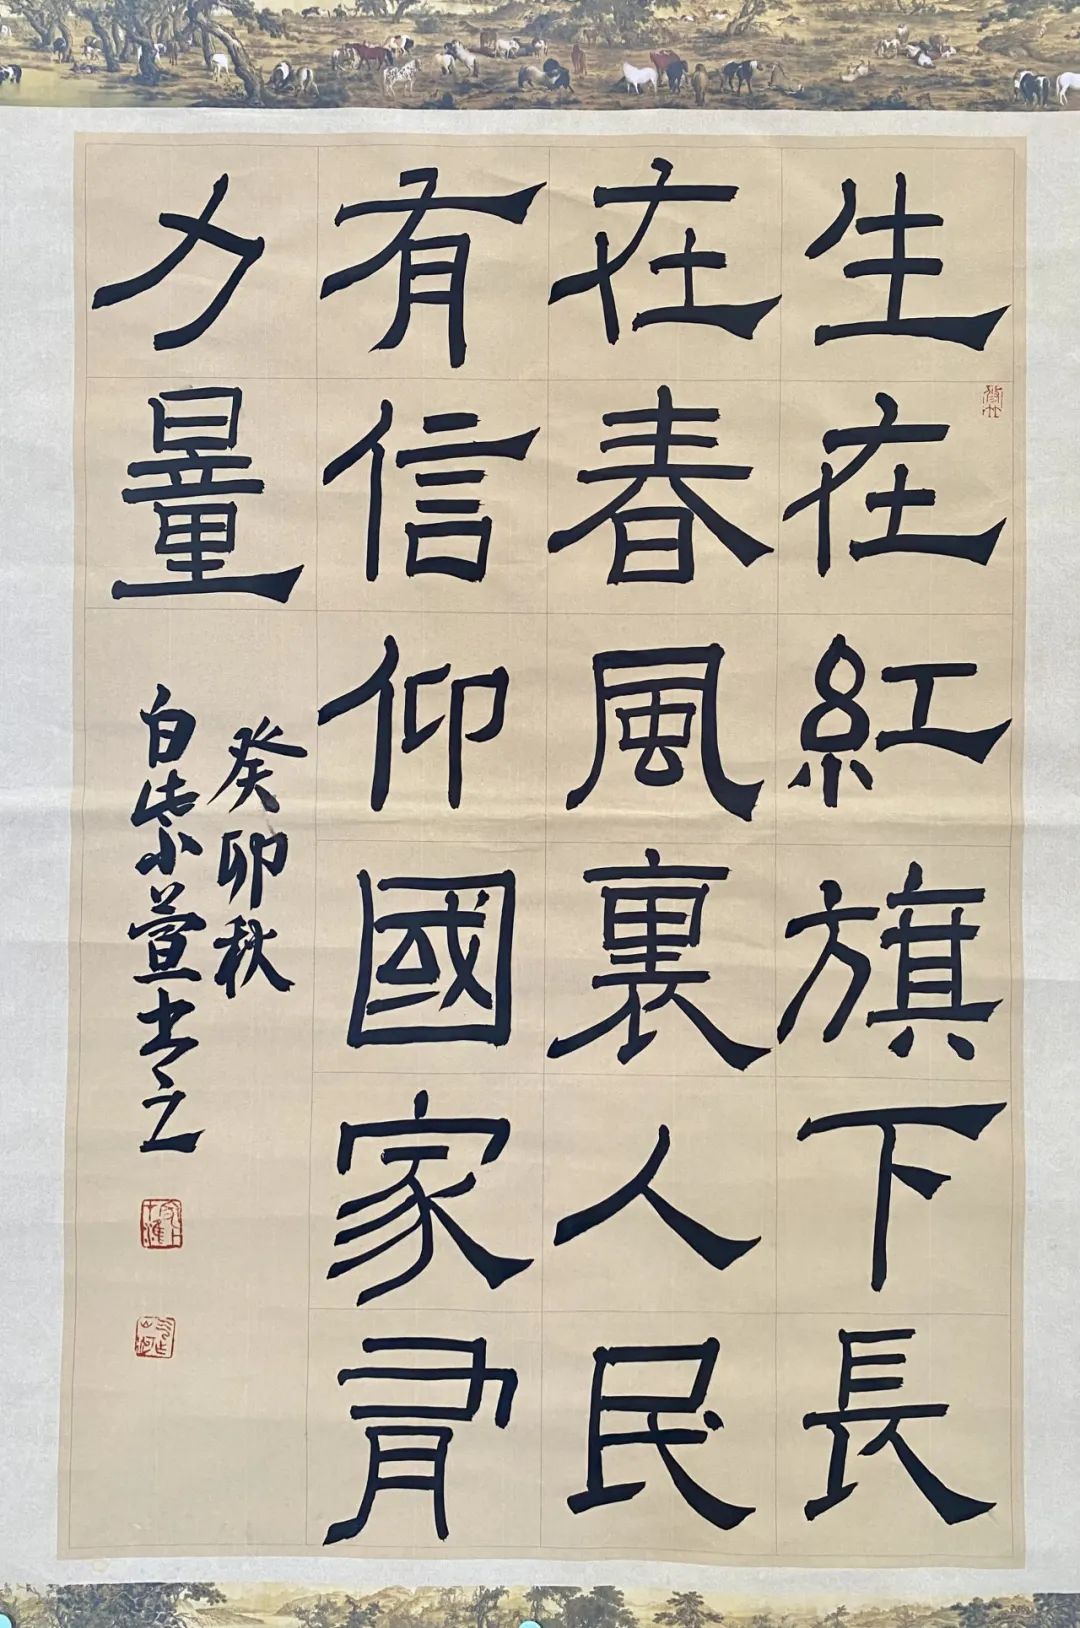 生在紅旗下長
在春風裏人民
有信仰國家有
力量
癸卯秋
白紫萱书之